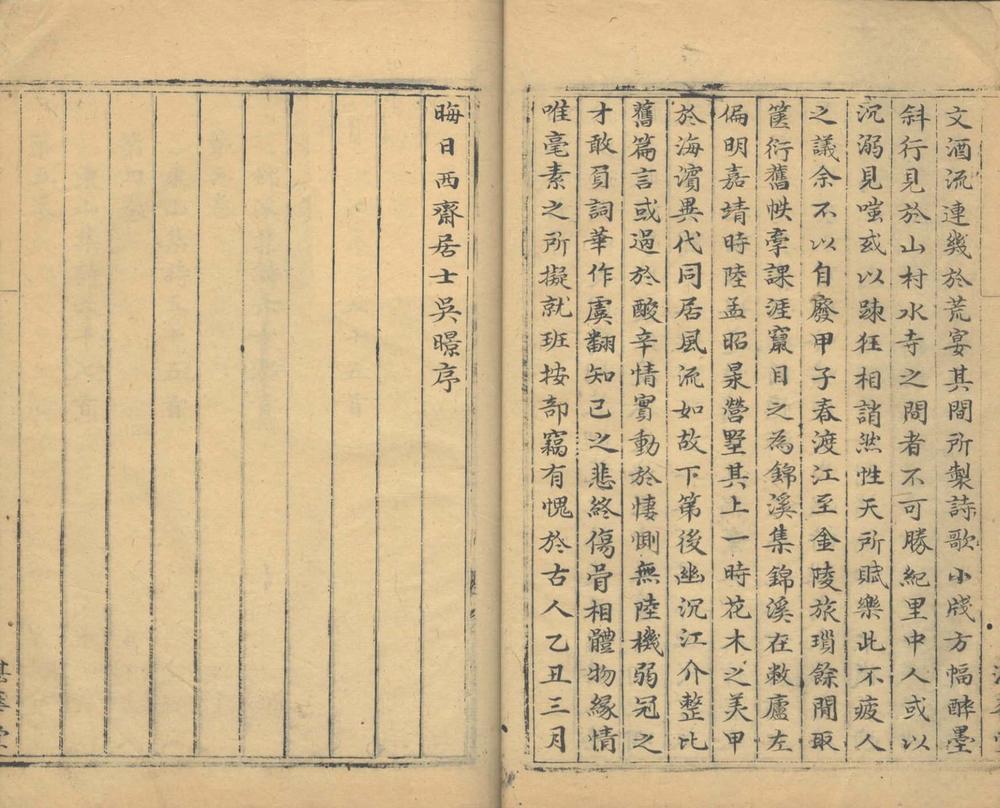 文酒流連幾於荒宴其間所製詩歌小牋方幅醉墨
斜行見於山村水寺之間者不可勝紀里中人或以
沉溺見嗤或以踈狂相誚然性天所賦樂此不疲人
之議余不以自廢甲子春渡江至金陵旅瑣餘閒取
篋衍舊帙㧓課涯竄目之為錦溪集錦溪在敝廬左
偏明嘉靖時陸孟昭杲營墅其上一時花木之美甲
於海濵異代同居風流如故下第後幽沉江介整比
舊篇言或過於酸辛情實動於悽惻無陸機弱冠之
才敢負詞華作虞翻知己之悲終傷骨相體物緣情
唯毫素之所擬就班按部竊有愧於古人乙丑三月
晦日西齋居士吳暻序